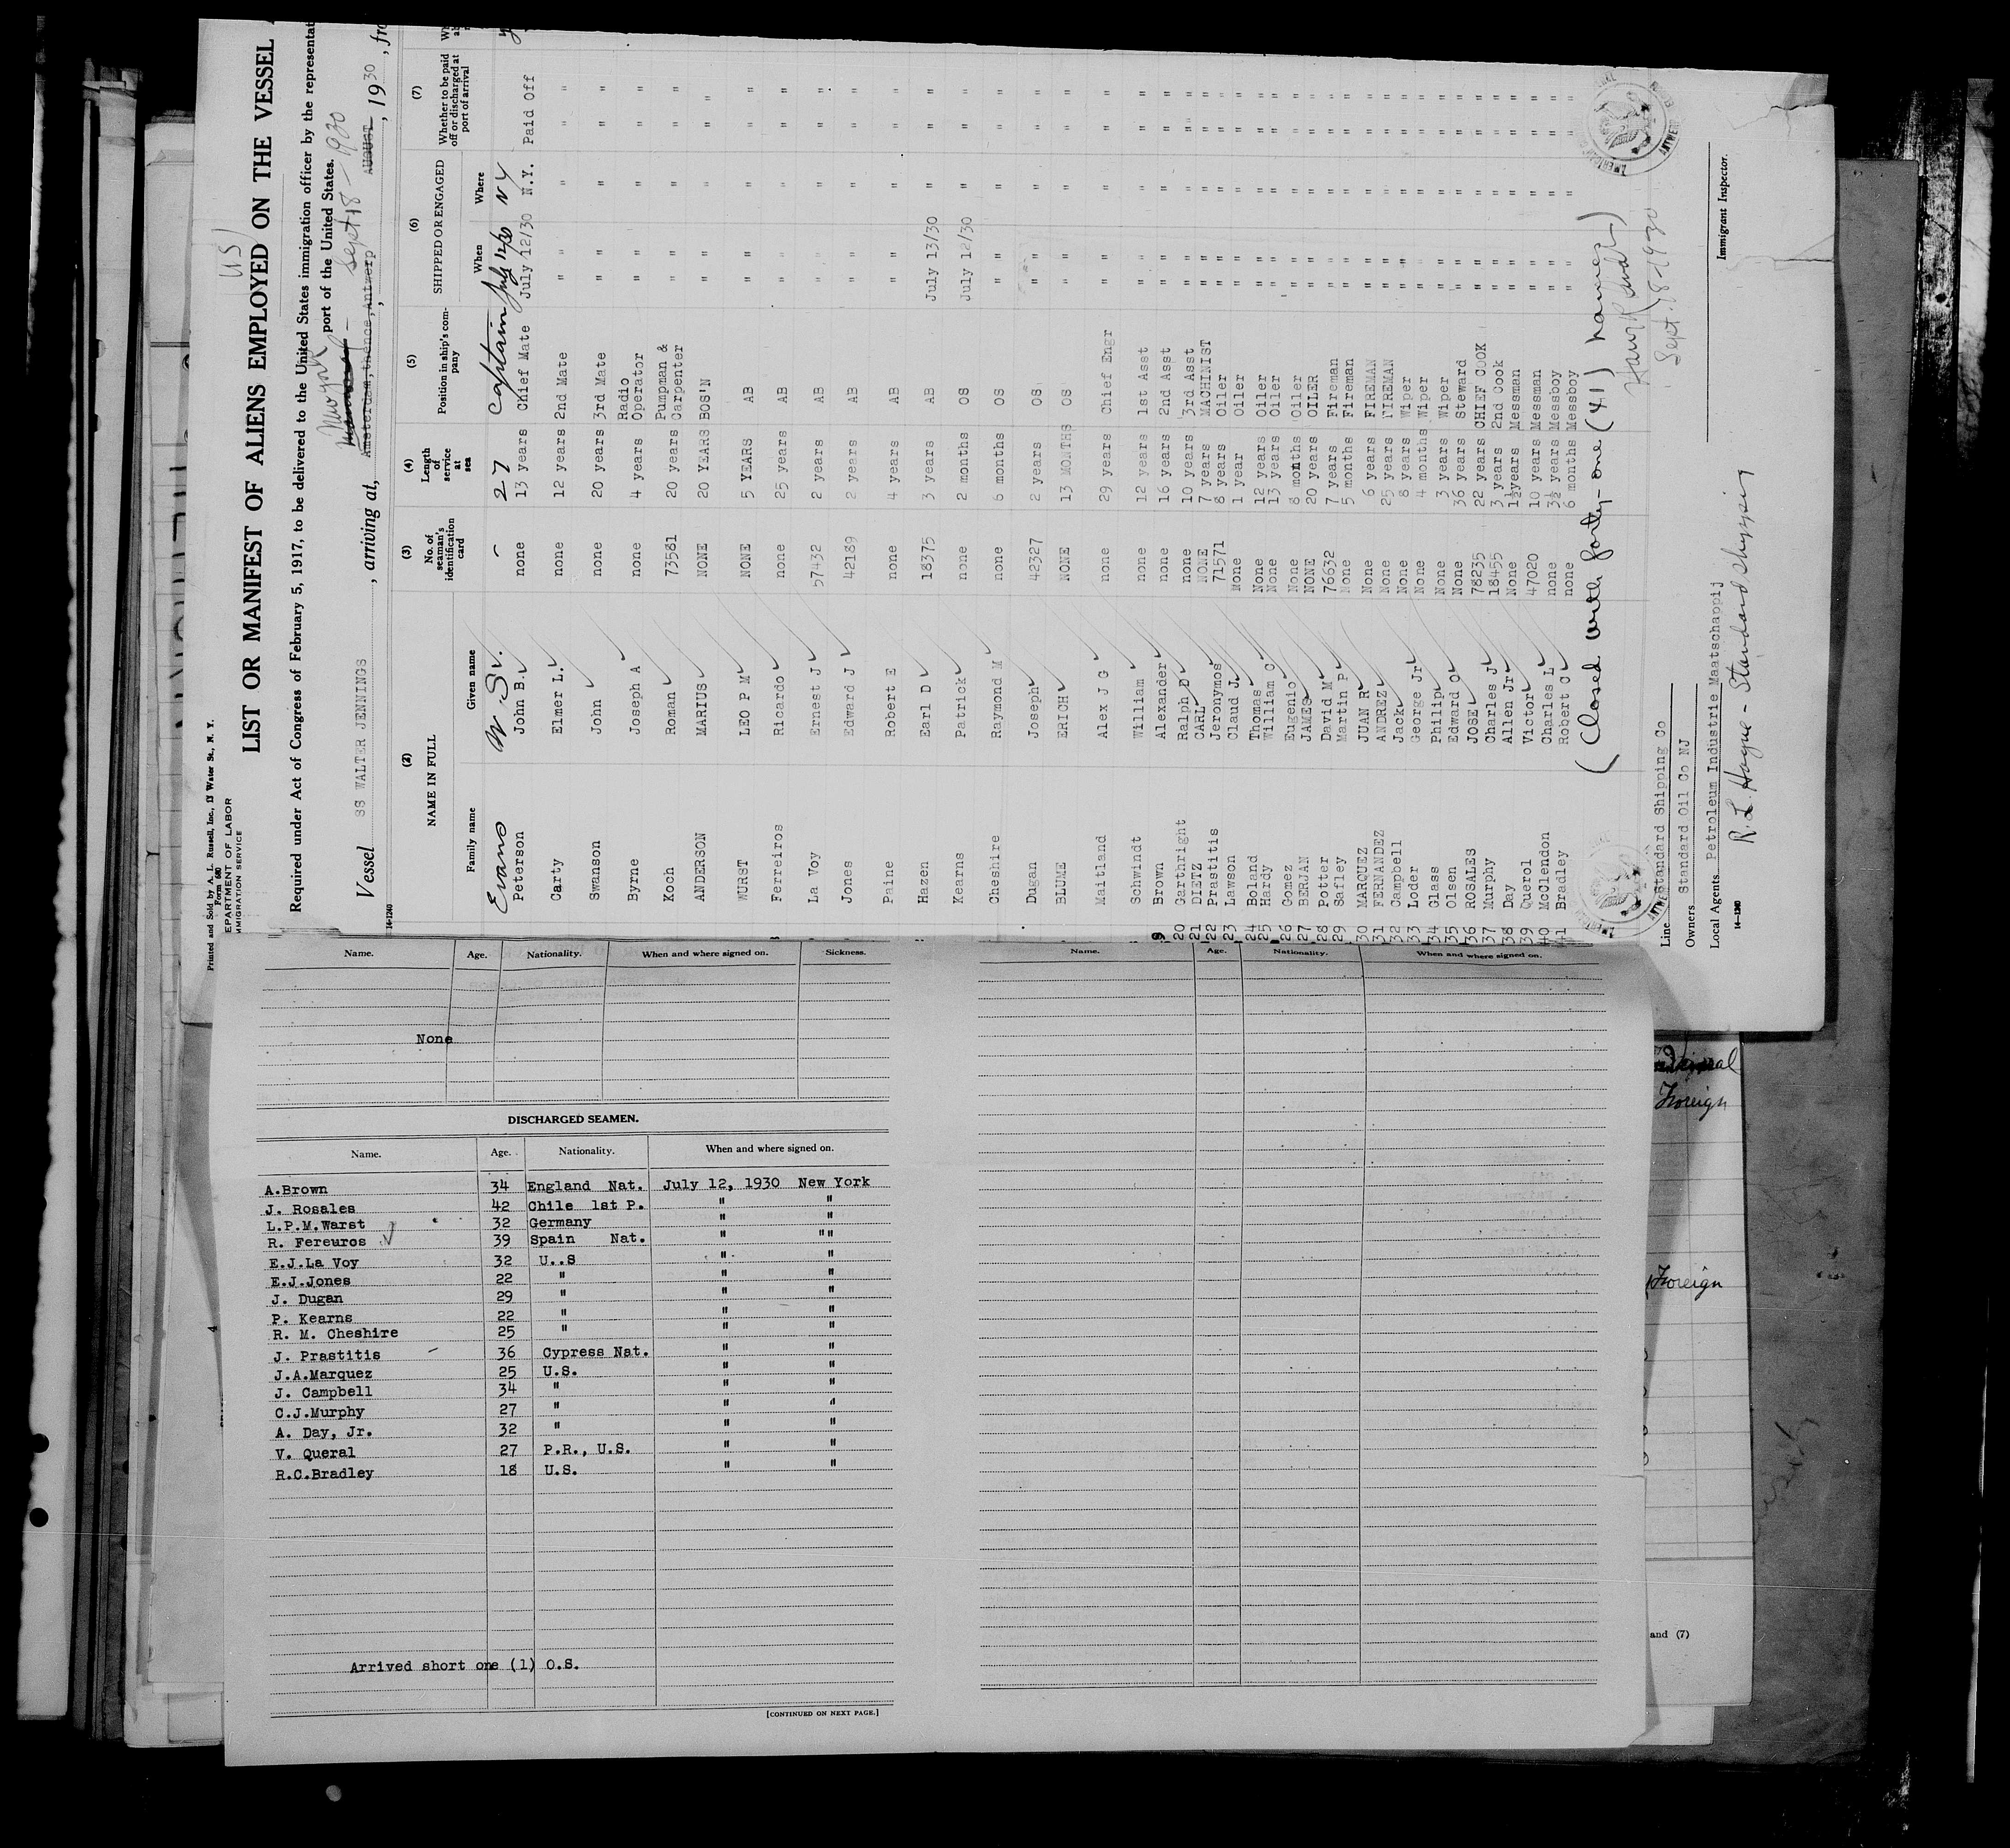 Printed and Sold by A. L. Russell, Inc., 13 Water St., N. Y.
Form 680
EPARTMENT OF LABOR
MMIGRATION SERVICE
U S
LIST OR MANIFEST OF ALIENS EMPLOYED ON THE VESSEL
Required under Act of Congress of February 5, 1917, to be delivered to the United States immigration officer by the representat
port of the United States.
Vessel SS WALTER JENNINGS, arriving at, Amsterdam, thence, Antwerp Sept 18 - 1930 AUGUST, 1930, fro
14-1240
(2) (3) (4) (5) (6) (7)
NAME IN FULL No. of seaman's identification card Length of service at sea Position in ship's company SHIPPED OR ENGAGED Whether to be paid off or discharged at port of arrival
Family name Given name When Where
Evans W. St. - 27 Captain July 12/30 NY
Peterson John B. none 13 years Chief Mate July 12/30 N.Y. Paid Off
Carty Elmer L. none 12 years 2nd Mate " " " " "
Swanson John none 20 years 3rd Mate " " " " "
Byrne Joseph A none 4 years Radio Operator " " " " "
Koch Roman 73581 20 years Pumpman & Carpenter " " " " "
ANDERSON MARIUS NONE 20 YEARS BOS'N " " " " "
WURST LEO P M NONE 5 YEARS AB " " " " "
Ferreiros Ricardo none 25 years AB " " " " "
La Voy Ernest J 57432 2 years AB " " " " "
Jones Edward J 42189 2 years AB " " " " "
Paine Robert E none 4 years AB " " " " "
Hazen Earl D 18375 3 years AB July 13/30 " " "
Kearns Patrick none 2 months OS July 12/30 " " "
Cheshire Raymond M none 6 months OS " " " " "
Dugan Joseph 42327 2 years OS " " " " "
BLUME ERICH NONE 13 MONTHS OS " " " " "
Maitland Alex J G none 29 years Chief Engr " " " " "
Schwindt William none 12 years 1st Asst " " " " "
19 Brown Alexander none 16 years 2nd Asst " " " " "
20 Garthright Ralph D none 10 years 3rd Asst " " " " "
21 DIETZ CARL NONE 7 years MACHINIST " " " " "
22 Prastitis Jeronymos 71571 8 years Oiler " " " " "
23 Lawson Claud J. None 1 year Oiler " " " " "
24 Boland Thomas None 12 years Oiler " " " " "
25 Hardy William C None 13 years Oiler " " " " "
26 Gomez Eugenio None 8 months Oiler " " " " "
27 BERJAN JAMES NONE 20 years OILER " " " " "
28 Potter David M 76632 7 years Fireman " " " " "
29 Safley Martin P None 5 months Fireman " " " " "
30 MARQUEZ JUAN R None 6 years FIREMAN " " " " "
31 FERNANDEZ ANDREZ None 25 years FIREMAN " " " " "
32 Campbell Jack None 8 years Wiper " " " " "
33 Loder George Jr None 4 months Wiper " " " " "
34 Glass Philip None 3 years Wiper " " " " "
35 Olsen Edward O None 36 years Steward " " " " "
36 ROSALES JOSE 78235 22 years CHIEF COOK " " " " "
37 Murphy Charles J 18455 3 years 2nd Cook " " " " "
38 Day Allen Jr None 1½years Messman " " " " "
39 Querol Victor 47020 10 years Messman " " " " "
40 McClendon Charles L none 3½ years Messboy " " " " "
41 Bradley Robert C none 6 months Messboy " " " " "
( Closed with forty-one (41) names )
Sept. 18-1930
Line Standard Shipping Co
Owners Standard Oil Co NJ
Local Agents Petroleum Industrie Maatschappij
Immigrant Inspector.
14-1240
R. L. Hague - Standard Shipping
Name. Age. Nationality. When and where signed on. Sickness.
None
DISCHARGED SEAMEN.
Name. Age. Nationality. When and where signed on.
A.Brown 34 England Nat. July 12, 1930 New York
J. Rosales 42 Chile 1st P. " "
L.P.M.Warst 32 Germany " "
R. Fereuros 39 Spain Nat. " ""
E.J.La Voy 32 U..S " "
E.J.Jones 22 " " "
J. Dugan 29 " " "
P. Kearns 22 " " "
R. M. Cheshire 25 " " "
J. Prastitis 36 Cypress Nat. " "
J.A.Marquez 25 U.S. " "
J. Campbell 34 " " "
C.J.Murphy 27 " " "
A. Day, Jr. 32 " " "
V. Queral 27 P.R., U.S. " "
R.C.Bradley 18 U.S. " "
Arrived short one (1) O.S.
[CONTINUED ON NEXT PAGE.]
Name. Age. Nationality. When and where signed on.
Foreign
Foreign
and (7)